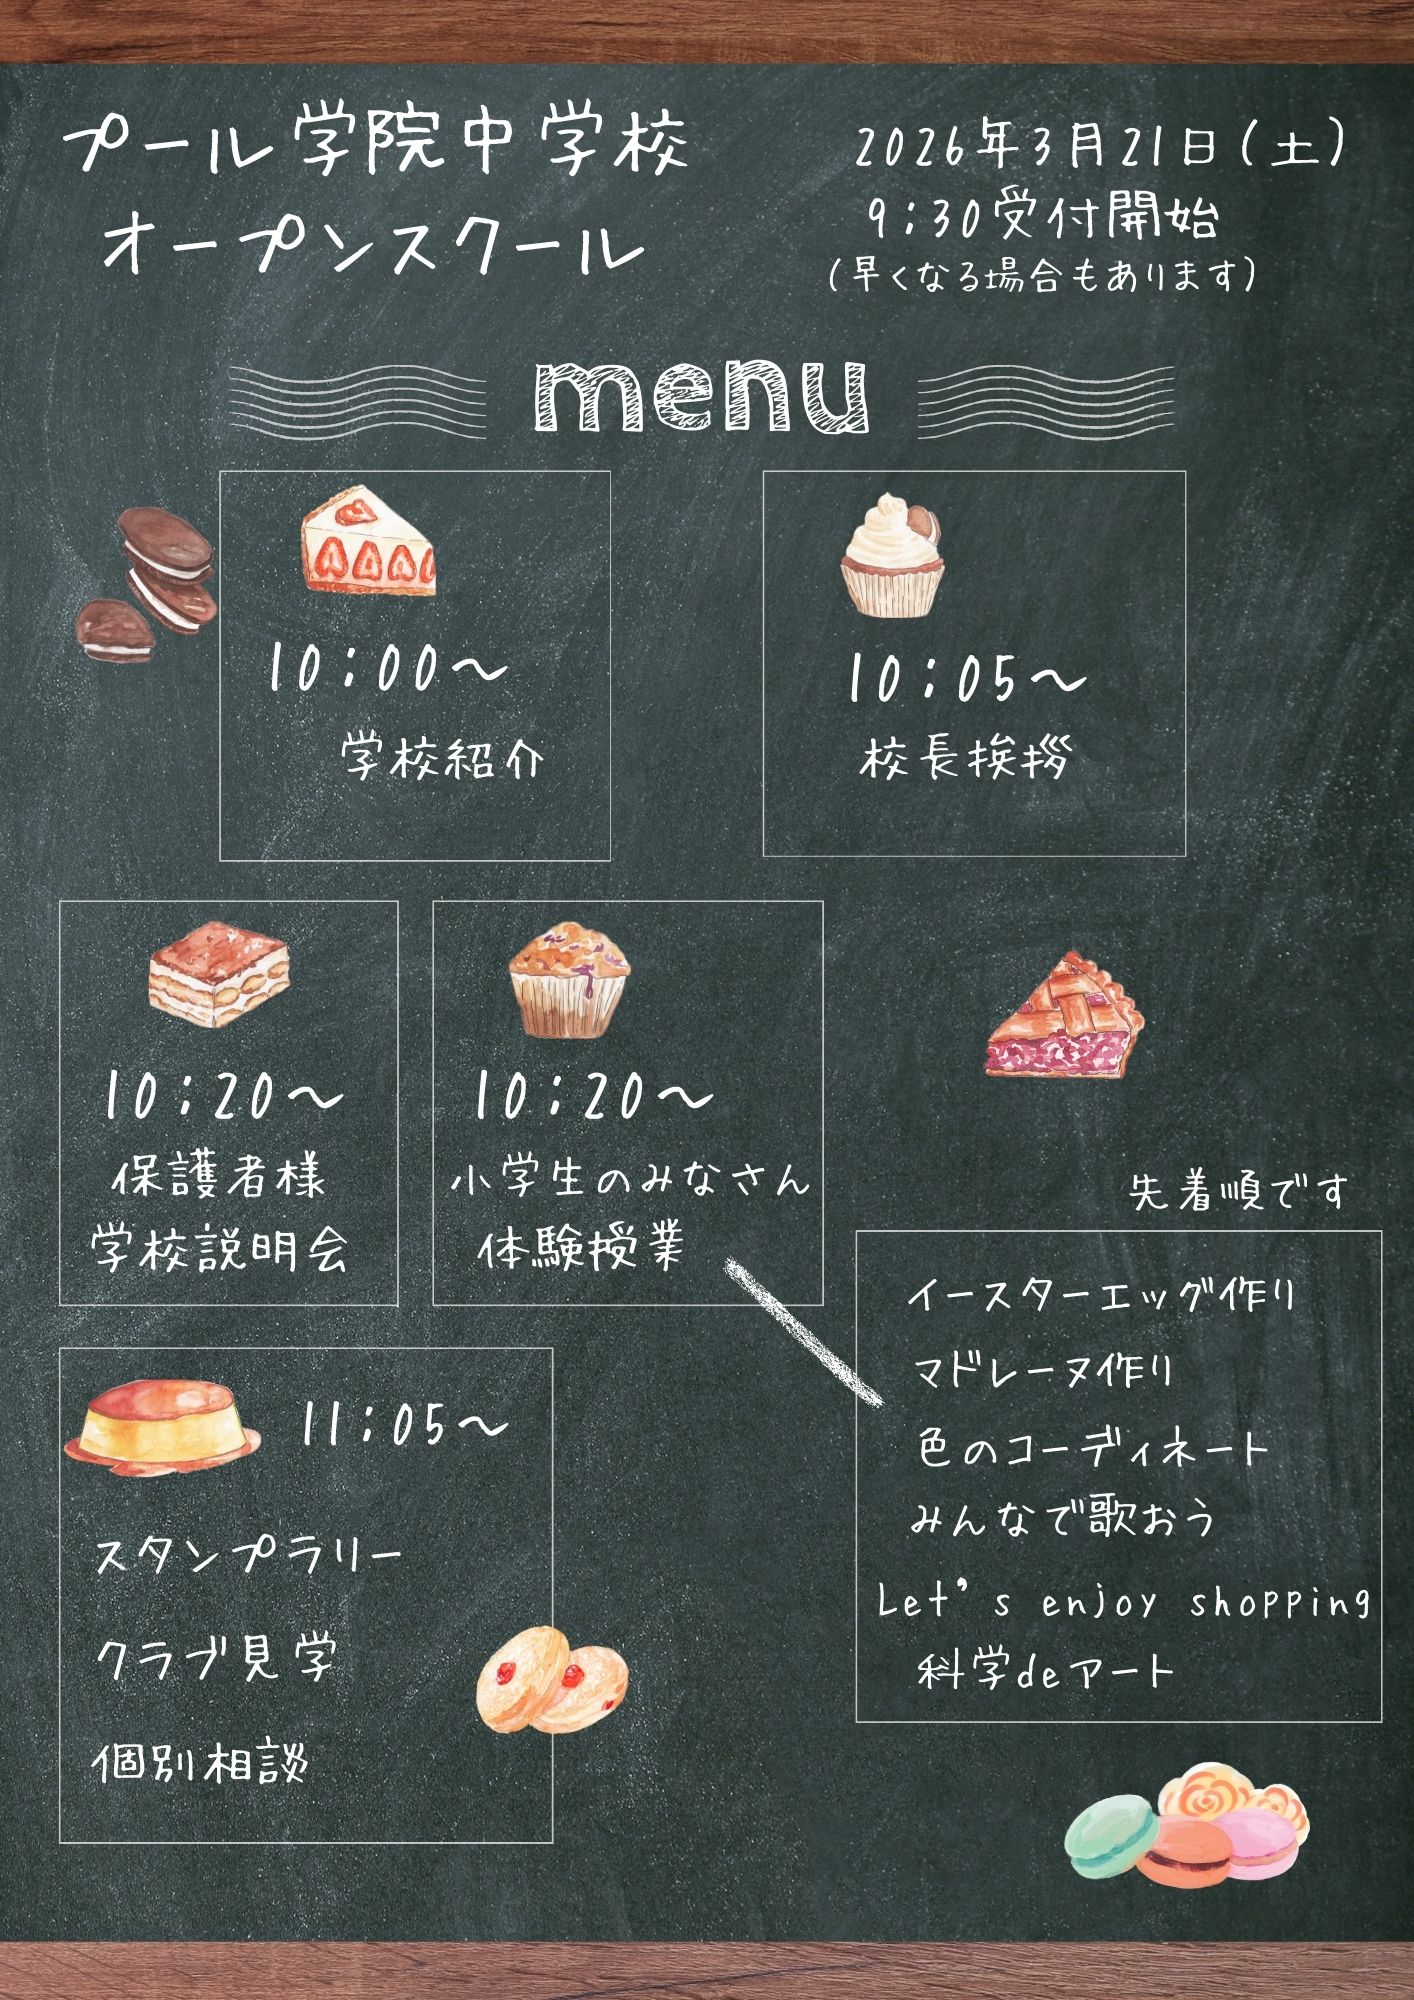 プール学院中学校
オープンスクール
2026年3月21日(土)
9:30受付開始
(早くなる場合もあります)
menu
10:00～
学校紹介
10:05～
校長挨拶
10:20～
保護者様
学校説明会
10:20～
小学生のみなさん
体験授業
先着順です
イースターエッグ作り
マドレーヌ作り
色のコーディネート
みんなで歌おう
Let's enjoy shopping
科学deアート
11:05～
スタンプラリー
クラブ見学
個別相談